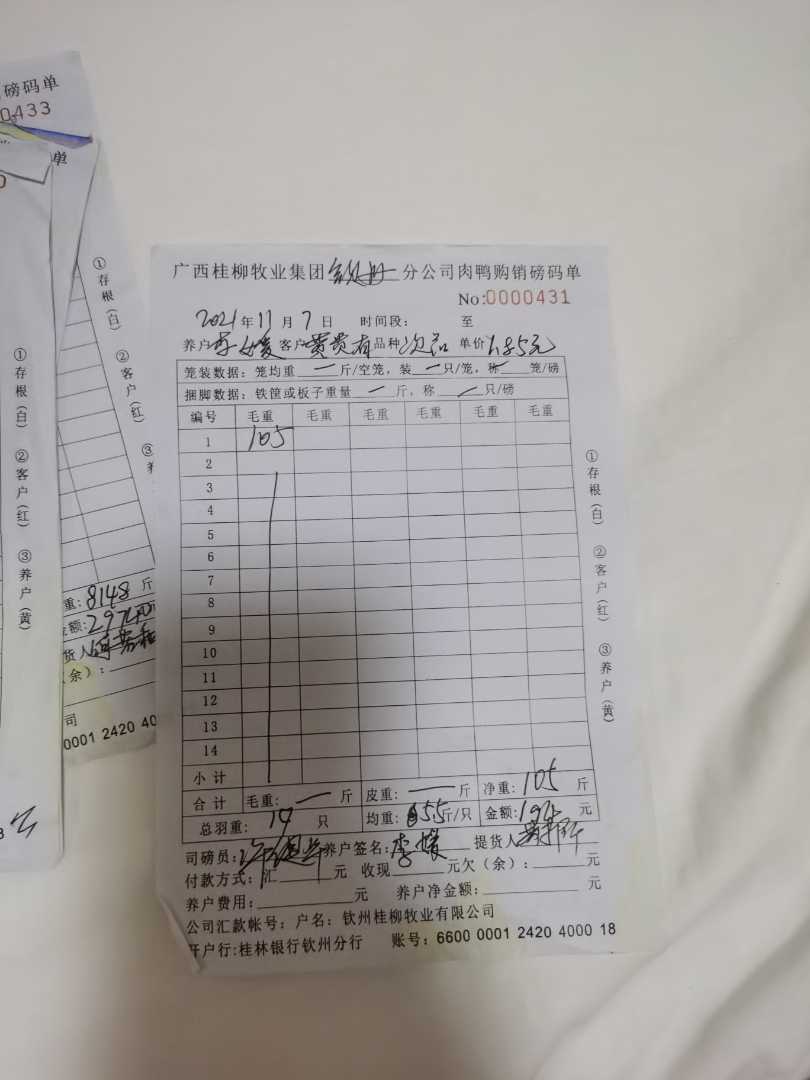 磅码单
0433
单
①存根(白) ②客户(红) ③养
①存根(白) ②客户(红) ③养户(黄)
重: 8148 斤
金额: 297
货人
(余):
司
0001 2420 40
广西桂柳牧业集团 分公司肉鸭购销磅码单
No:0000431
2021年11月7日 时间段: 至
养户 李媛 客户 黄贵有 品种 次品 单价 1.85元
笼装数据: 笼均重 一 斤/空笼, 装 一 只/笼, 称 一 笼/磅
捆脚数据: 铁筐或板子重量 一 斤, 称 一 只/磅
编号 毛重 毛重 毛重 毛重 毛重 毛重
1 105
2
3
4
5
6
7
8
9
10
11
12
13
14
小计
合计 毛重: 一 斤 皮重: 一 斤 净重: 105 斤
总羽重: 19 只 均重: 5.5 斤/只 金额: 194 元
司磅员: 养户签名: 李媛 提货人
付款方式: 汇 元 收现 元欠(余): 元
养户费用: 元 养户净金额: 元
公司汇款帐号: 户名: 钦州桂柳牧业有限公司
开户行:桂林银行钦州分行 账号: 6600 0001 2420 4000 18
①存根(白) ②客户(红) ③养户(黄)